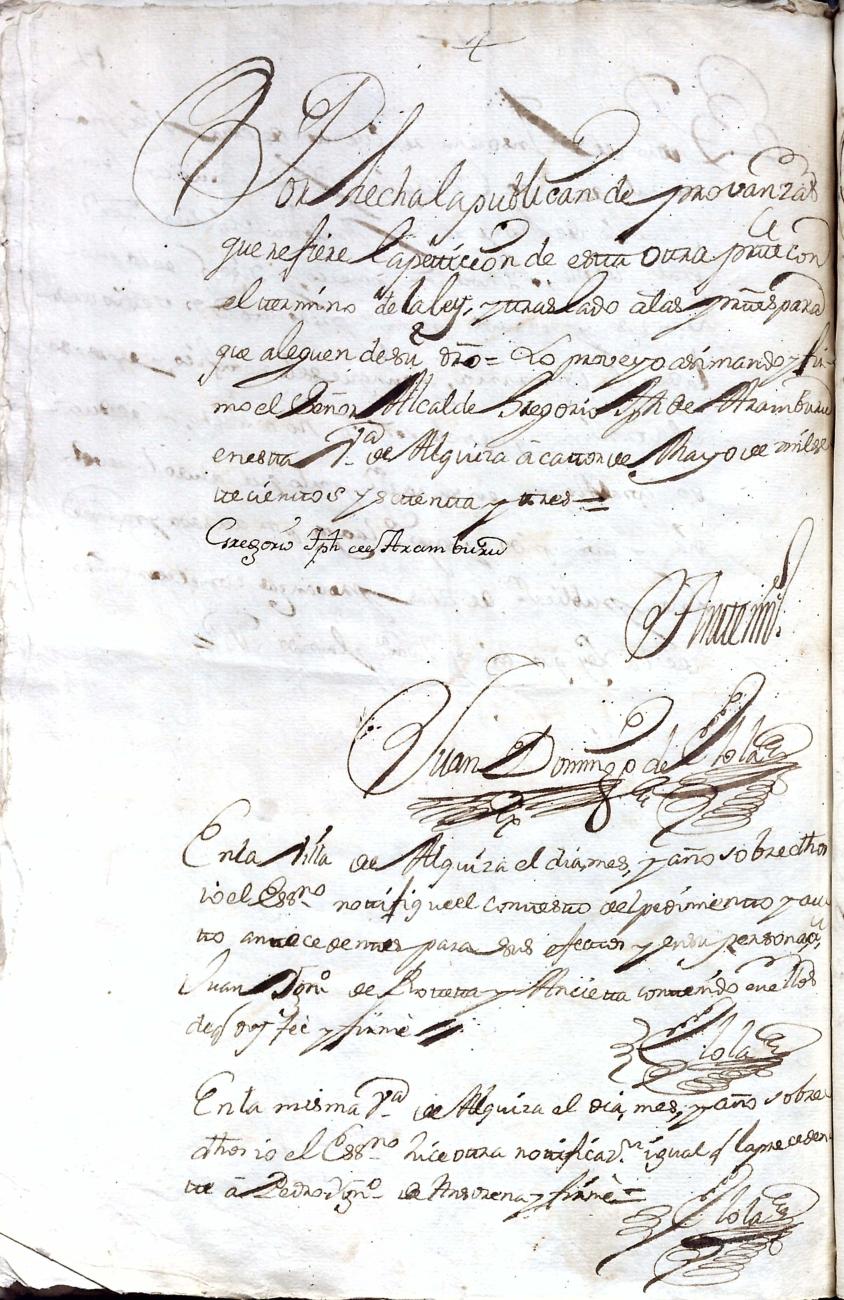 Por hecha la publican de provanzas
que refiere la petticion de estta ottra partte con
el ttermino de la ley, y ttraslado a las prttes para
que aleguen de su dro= Lo proveyo asi mando y fir-
mo el Señor Alcalde Gregorio Jph de Aramburu
en estta Va de Alquiza a cattorce de Mayo de mil se
ttecienttos y settentta y ttres=
Gregorio Jph de Aramburu
Antte mi
Juan Domingo de Olola
En la Villa de Alquiza el dia, mes, y año sobre dhos
io el Essno nottifique el conttestto del pedimientto y au
tto anttecedenttes para sus efecttos y en su persona a
Juan Dgno de Rottetta y Ancietta conttenido en ellos
de q doy fee y firmè
Olola
En la misma Va de Alquiza el dia, mes, y año sobre
dhos io el Essno hice ottra nottificazn igual q la preceden
tte à Pedro Dgno de Ansorena y firmè=
Olola